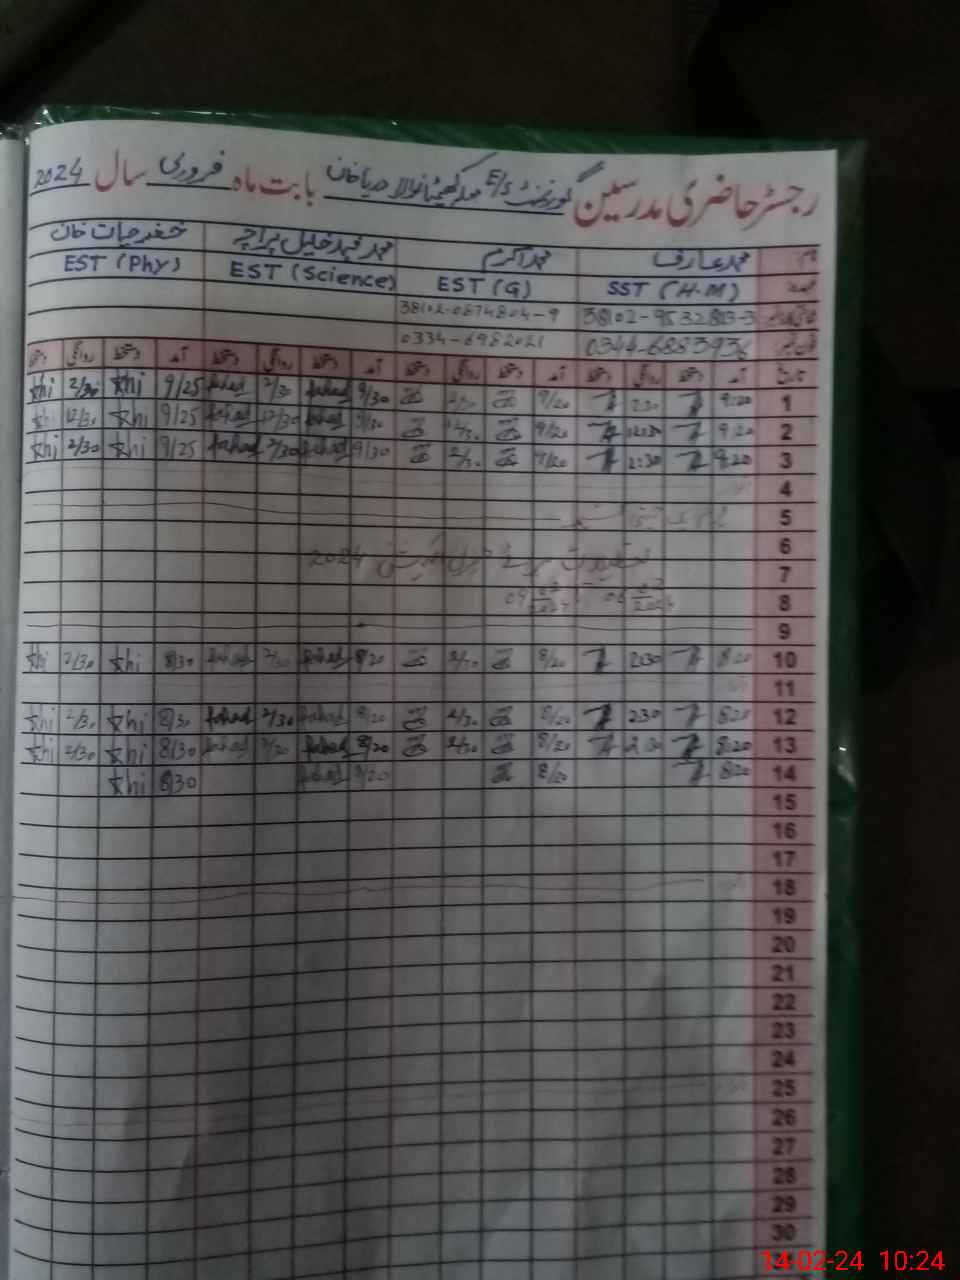 رجسٹر حاضری مدرسین گورنمنٹ E/S دریا خان بابت ماہ فروری سال 2024
نام محمد عارف محمد اکرم محمد فہد خلیل پراچہ خضر حیات خان
عہدہ SST (H.M) EST (G) EST (Science) EST (Phy)
38102-0874804-9
0334-6982021
تاریخ آمد دستخط روانگی دستخط آمد دستخط روانگی دستخط آمد دستخط روانگی دستخط آمد دستخط روانگی دستخط
1 9:20 2:30 9/20 9/30 fahad 2/30 fahad 9/25 Khi 2/30 Khi
2 9:20 12:30 9/20 12/30 9/30 fahad 12/30 fahad 9/25 Khi 12/30 Khi
3 9:20 2:30 9/20 2/30 9/30 fahad 2/30 fahad 9/25 Khi 2/30 Khi
4 اتوار
5 یوم یکجہتی کشمیر
6
7 تعطیلات برائے جنرل الیکشن 2024
8
9
10 8:20 2:30 8/20 2/30 8/20 fahad 2/30 fahad 8/30 Khi 2/30 Khi
11 اتوار
12 8:20 2:30 8/20 2/30 8/20 fahad 2/30 fahad 8/30 Khi 2/30 Khi
13 8:20 2:30 8/20 2/30 8/20 fahad 2/30 fahad 8/30 Khi 2/30 Khi
14 8:20 8/20 8/20 fahad 8/30 Khi
15
16
17
18 اتوار
19
20
21
22
23
24
25 اتوار
26
27
28
29
30
14-02-24 10:24